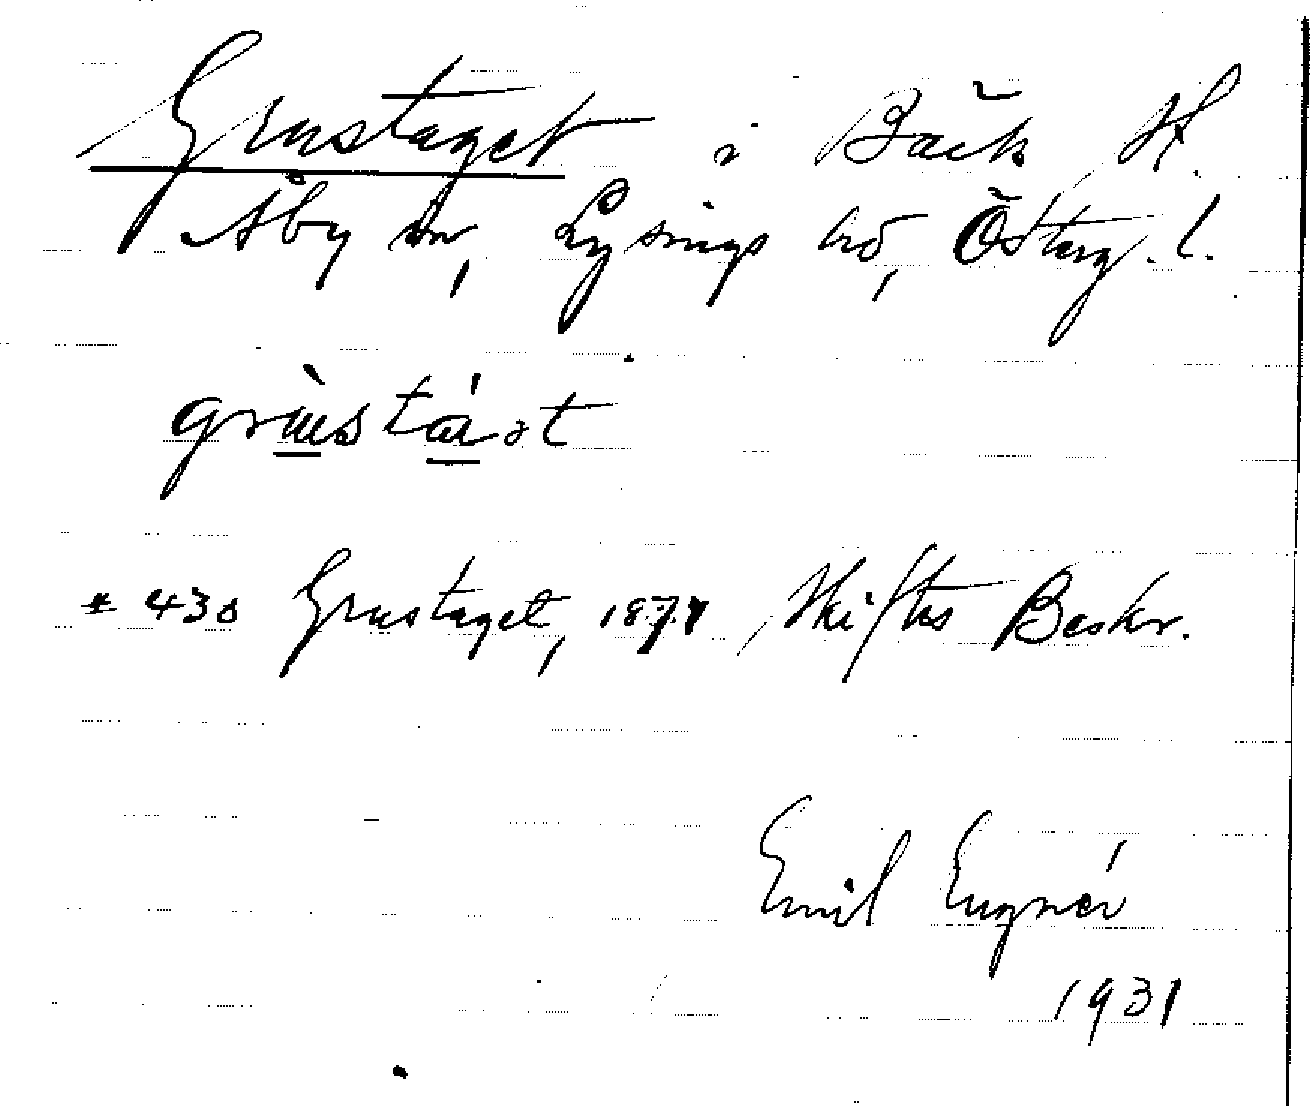 Grustaget i Bäck St.
Åby sn, Lysings hd, Österg. l.
grùstáət
* 430 Grustaget, 1877, Skiftes Beskr.
Emil Eugnér
1931